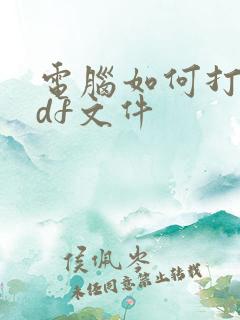 電腦如何打
df文件
侯佩岑
未经同意禁止转载